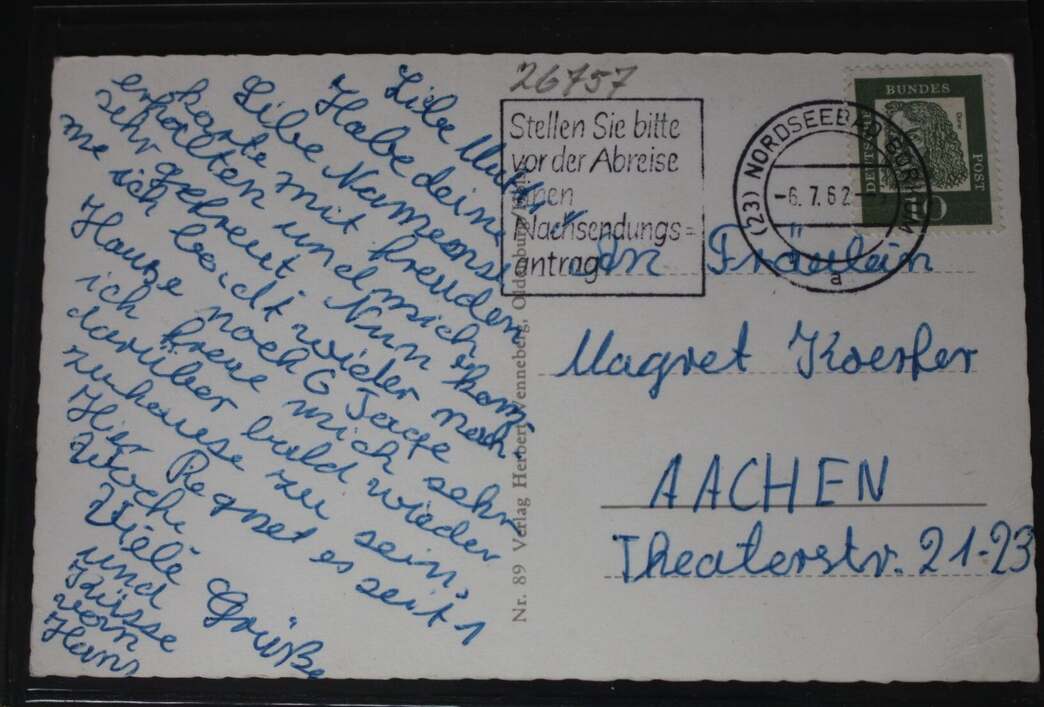 26757
Stellen Sie bitte
vor der Abreise
einen
Nachsendungs=
antrag
(23) NORDSEEBAD BORKUM
-6.7.62.-
a
BUNDES
POST
DEUTSCHE
Liebe Mutti
Habe deine
Liebe Namenans
Karte mit freuden
erhalten und mich
sehr gefreut. Nun kom
me ich bald wieder nach
Hause noch 6 Tage
ich freue mich sehr
darüber bald wieder
zuhause zu sein,
Hier Regnet es seit 1
Woche
Viele Grüße
und
Küsse
von
Hans
Nr. 89 Verlag Herbert Wenneberg, Oldenburg/
An Fräulein
Magret Koerfer
AACHEN
Theaterstr. 21-23